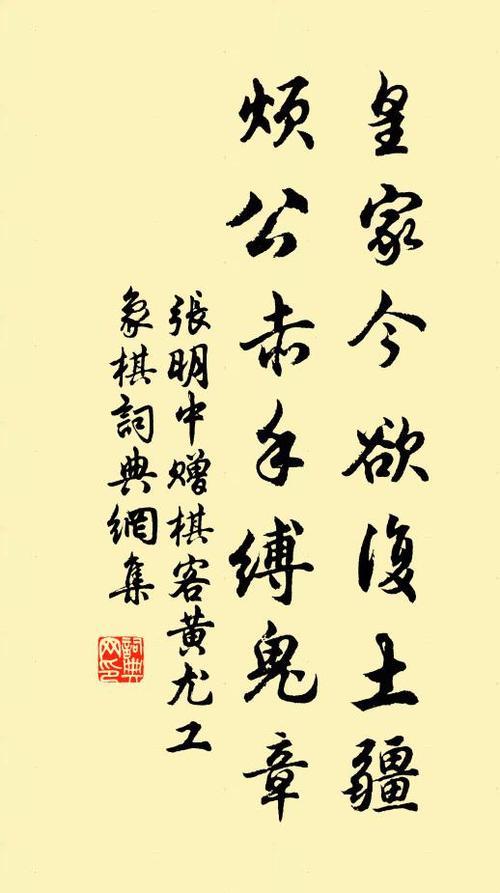 皇家今欲復土疆
煩公赤手縛鬼章
張明中贈棋客黄尤工
象棋詞典網集
詞典网印